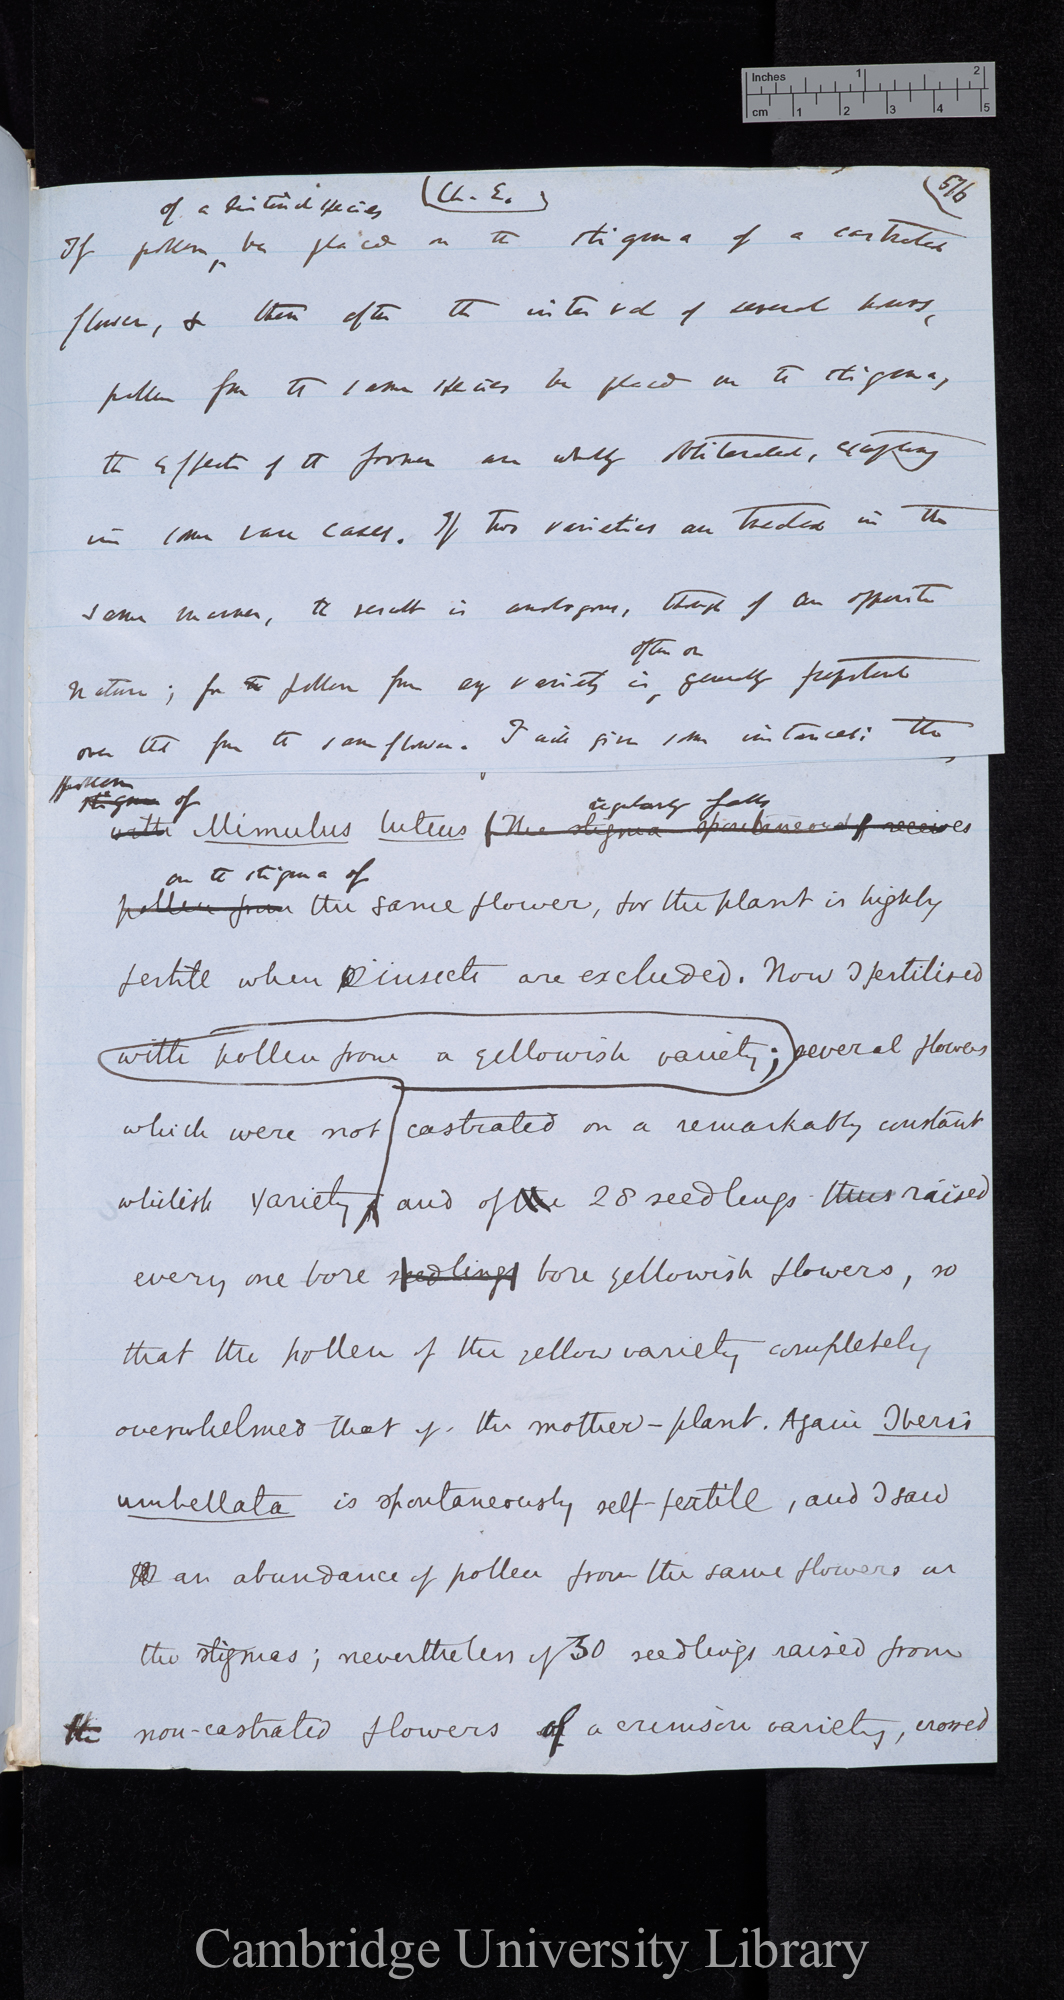 Inches 1 2
cm 1 2 3 4 5
(Ch. E.)
576
of a distinct species
If pollen, be placed on the stigma of a castrated
flower, & then after the interval of several hours,
pollen from the same species be placed on the stigma,
the effects of the former are wholly obliterated, excepting
in some rare cases. If two varieties are treated in the
same manner, the result is analogous, though of an opposite
often or
nature; for the pollen from any variety is, generally prepotent
over that from the same flower. I will give some instances: the
pollen
stigma of
regularly falls
with Mimulus luteus (The stigma spontaneously receives
on the stigma of
pollen from the same flower, for the plant is highly
fertile when insects are excluded. Now I fertilised
with pollen from a yellowish variety; several flowers
which were not castrated on a remarkably constant
whitish variety, and of the 28 seedlings thus raised
every one bore seedlings bore yellowish flowers, so
that the pollen of the yellow variety completely
overwhelmed that of the mother-plant. Again Iberis
umbellata is spontaneously self-fertile, and I saw
an abundance of pollen from the same flowers on
the stigmas; nevertheless of 30 seedlings raised from
the non-castrated flowers of a crimson variety, crossed
Cambridge University Library